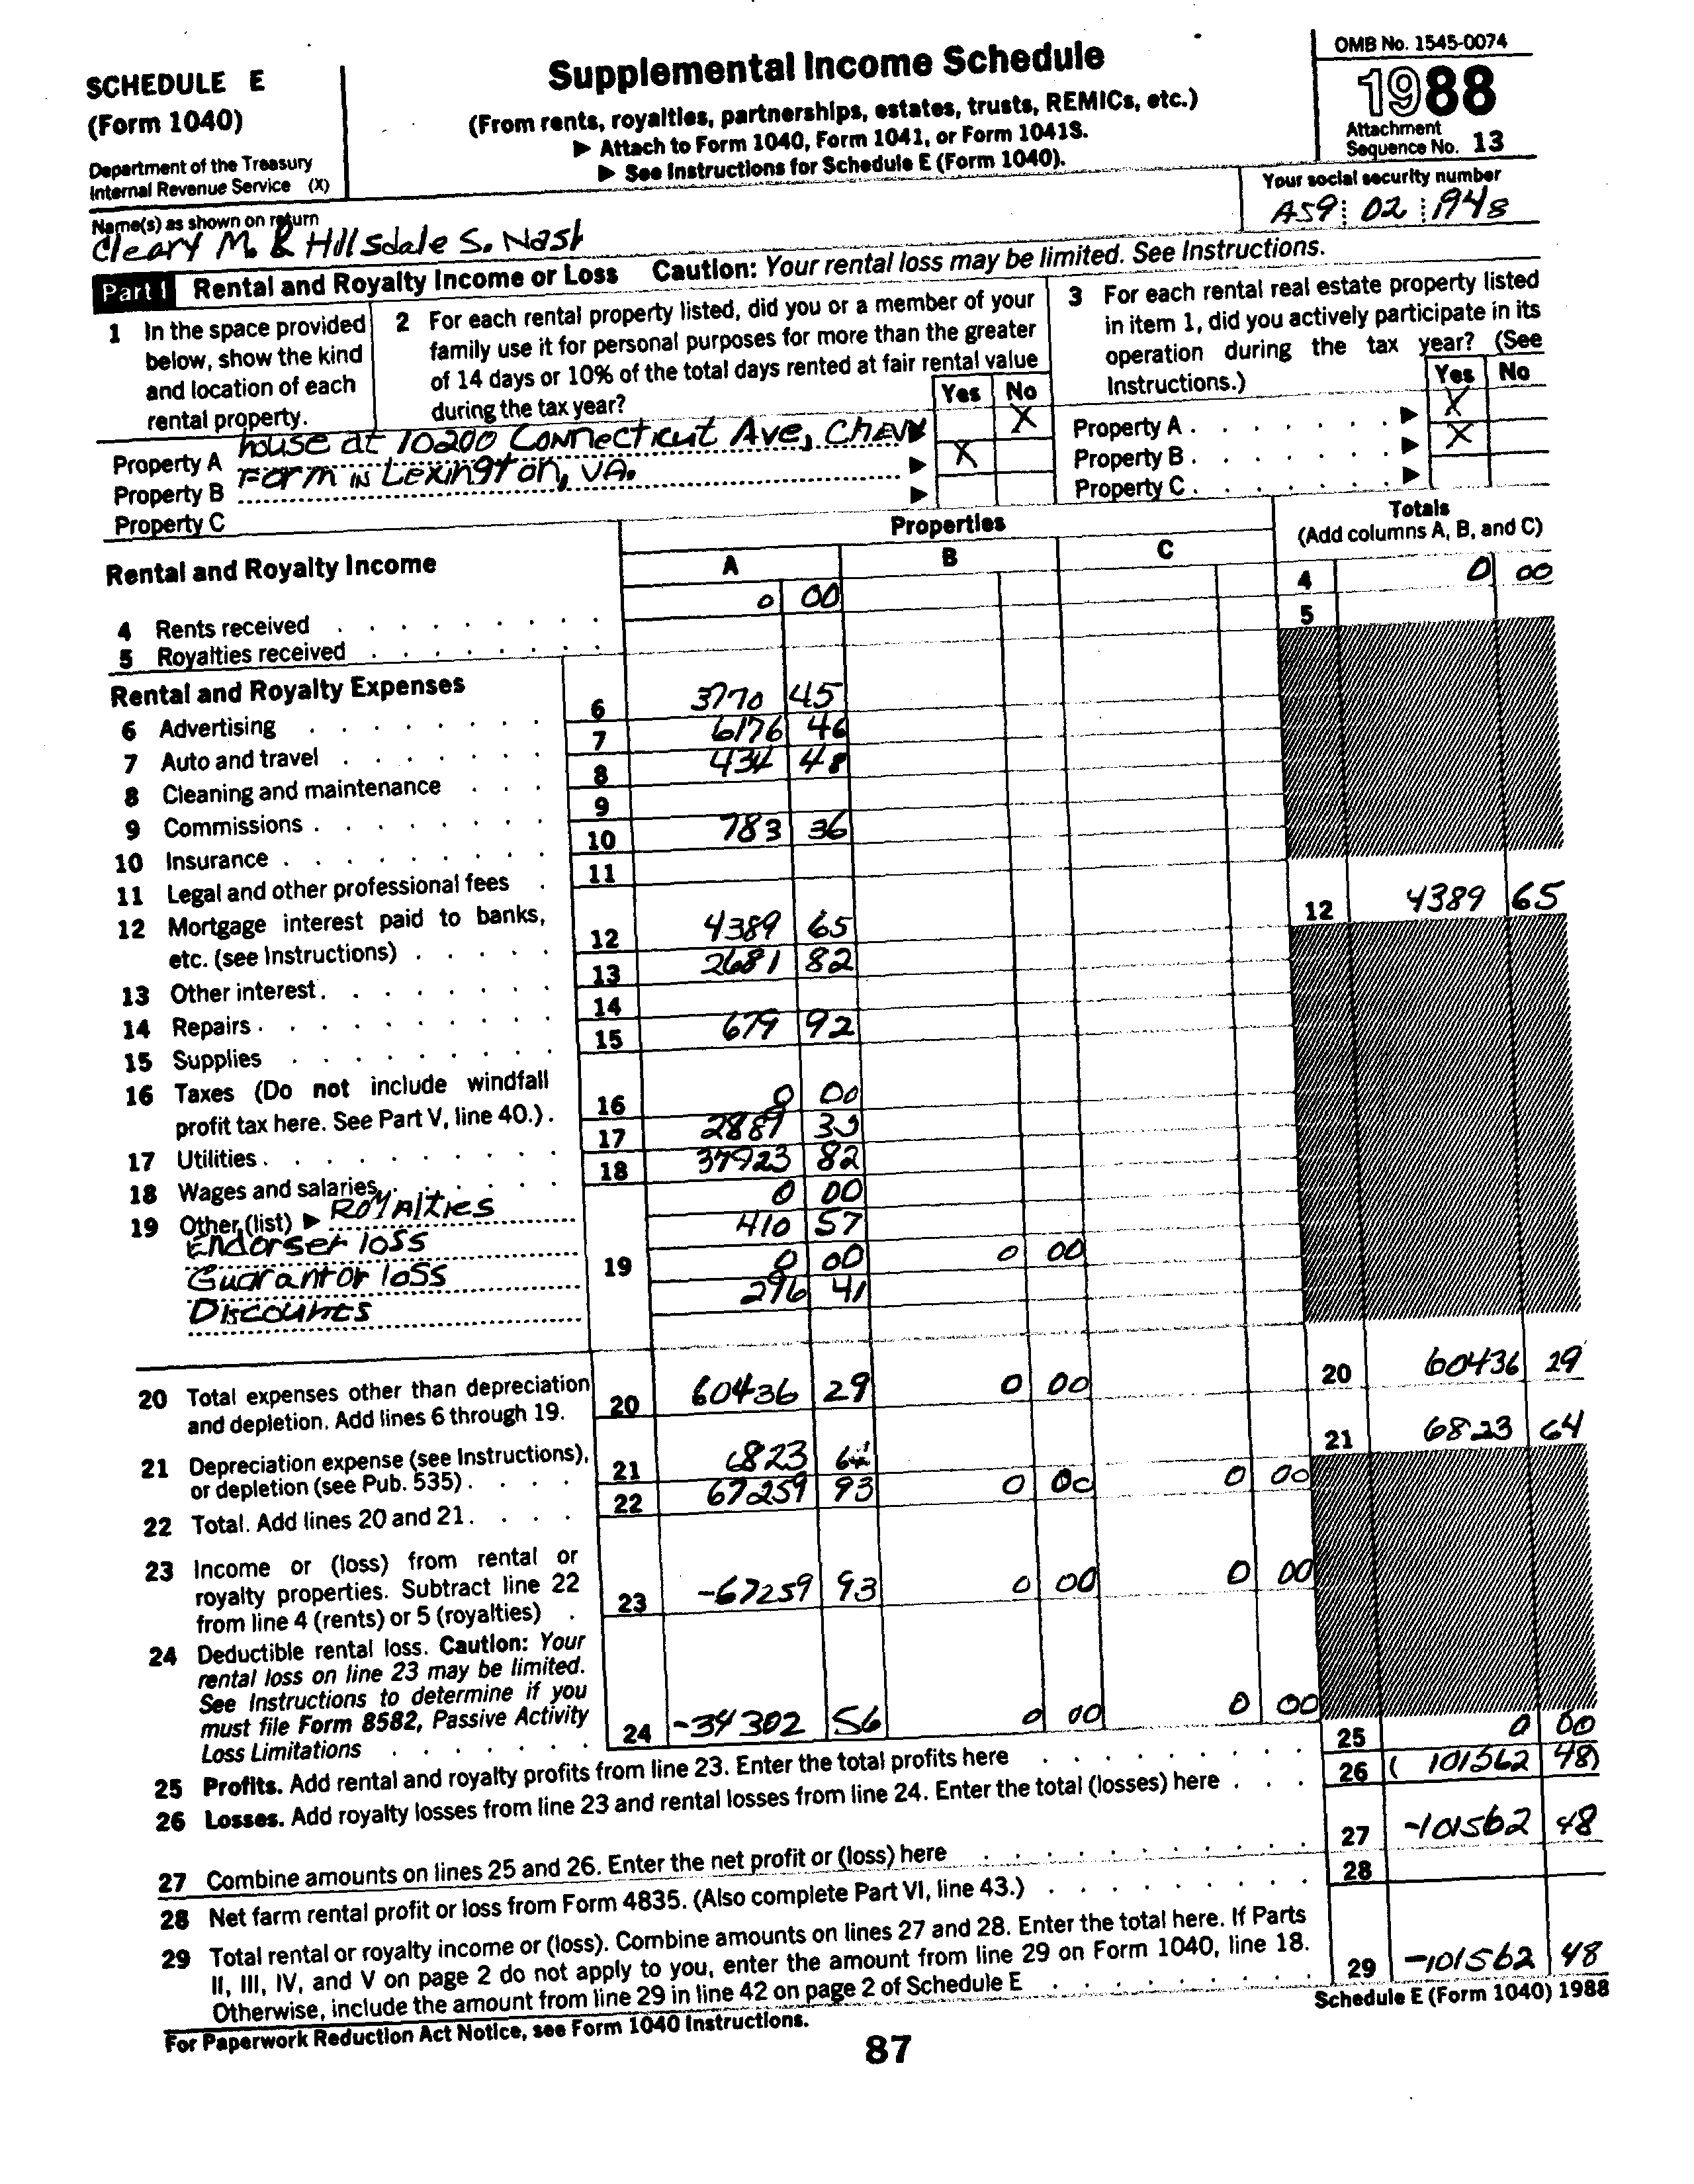 SCHEDULE E
(Form 1040)
Department of the Treasury
Internal Revenue Service (X)
Supplemental Income Schedule
(From rents, royalties, partnerships, estates, trusts, REMICs, etc.)
▶ Attach to Form 1040, Form 1041, or Form 1041S.
▶ See Instructions for Schedule E (Form 1040).
OMB No. 1545-0074
1988
Attachment
Sequence No. 13
Name(s) as shown on return
Cleary M. & Hillsdale S. Nash
Your social security number
A59 02 1948
Part I Rental and Royalty Income or Loss Caution: Your rental loss may be limited. See Instructions.
1 In the space provided
below, show the kind
and location of each
rental property.
2 For each rental property listed, did you or a member of your
family use it for personal purposes for more than the greater
of 14 days or 10% of the total days rented at fair rental value
during the tax year?
Yes No
3 For each rental real estate property listed
in item 1, did you actively participate in its
operation during the tax year? (See
Instructions.)
Yes No
Property A house at 10200 Connecticut Ave, Chevy X
Property B Farm in Lexington, VA. ▶ X
Property C ▶
Property A . . . . . . . ▶ X
Property B . . . . . . . ▶ X
Property C . . . . . . . ▶
Rental and Royalty Income
Properties
A B C
Totals
(Add columns A, B, and C)
4 Rents received 0 00 4 0 00
5 Royalties received 5
Rental and Royalty Expenses
6 Advertising 6 3770 45
7 Auto and travel 7 6176 46
8 Cleaning and maintenance 8 434 48
9 Commissions 9
10 Insurance 10 783 36
11 Legal and other professional fees 11
12 Mortgage interest paid to banks,
etc. (see Instructions) 12 4389 65 12 4389 65
13 Other interest 13 2681 82
14 Repairs 14
15 Supplies 15 679 92
16 Taxes (Do not include windfall
profit tax here. See Part V, line 40.) 16 0 00
17 Utilities 17 2889
18 Wages and salaries 18 37923 82
19 Other (list) ▶ Royalties 0 00
Endorser loss 410 57
Guarantor loss 19 0 00 0 00
Discounts 296 41
20 Total expenses other than depreciation
and depletion. Add lines 6 through 19. 20 60436 29 0 00 20 60436 29
21 Depreciation expense (see Instructions),
or depletion (see Pub. 535) 21 6823 64 21 6823 64
22 Total. Add lines 20 and 21 22 67259 93 0 00 0 00
23 Income or (loss) from rental or
royalty properties. Subtract line 22
from line 4 (rents) or 5 (royalties) 23 -67259 93 0 00 0 00
24 Deductible rental loss. Caution: Your
rental loss on line 23 may be limited.
See Instructions to determine if you
must file Form 8582, Passive Activity
Loss Limitations 24 -34302 56 0 00 0 00
25 Profits. Add rental and royalty profits from line 23. Enter the total profits here 25 0 00
26 Losses. Add royalty losses from line 23 and rental losses from line 24. Enter the total (losses) here 26 ( 101562 48)
27 Combine amounts on lines 25 and 26. Enter the net profit or (loss) here 27 -101562 48
28 Net farm rental profit or loss from Form 4835. (Also complete Part VI, line 43.) 28
29 Total rental or royalty income or (loss). Combine amounts on lines 27 and 28. Enter the total here. If Parts
II, III, IV, and V on page 2 do not apply to you, enter the amount from line 29 on Form 1040, line 18.
Otherwise, include the amount from line 29 in line 42 on page 2 of Schedule E 29 -101562 48
For Paperwork Reduction Act Notice, see Form 1040 Instructions.
Schedule E (Form 1040) 1988
87